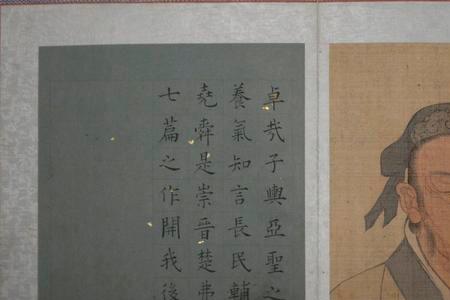 卓哉子輿亞聖之
養氣知言長民輔
堯舜是崇晉楚弗
七篇之作開我後